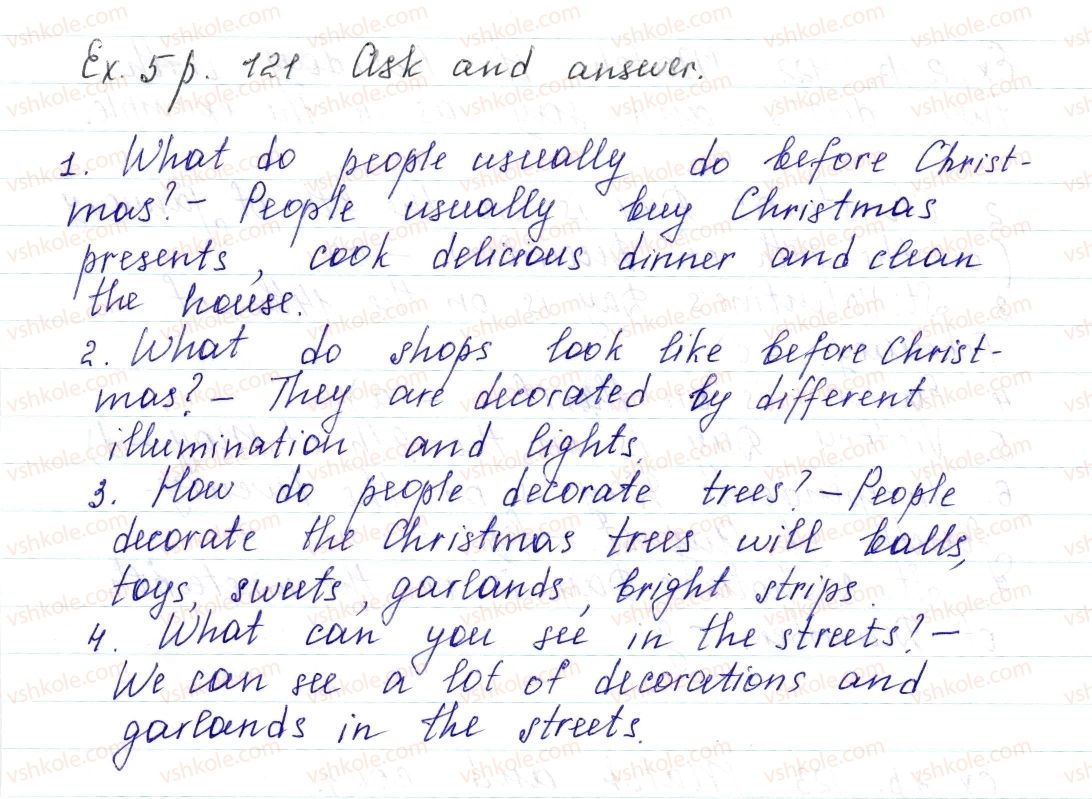 Ex. 5 p. 121 Ask and answer.
1. What do people usually do before Christ-
mas? - People usually buy Christmas
presents, cook delicious dinner and clean
the house.
2. What do shops look like before Christ-
mas? - They are decorated by different
illumination and lights.
3. How do people decorate trees? - People
decorate the Christmas trees will balls,
toys, sweets, garlands, bright strips.
4. What can you see in the streets? -
We can see a lot of decorations and
garlands in the streets.